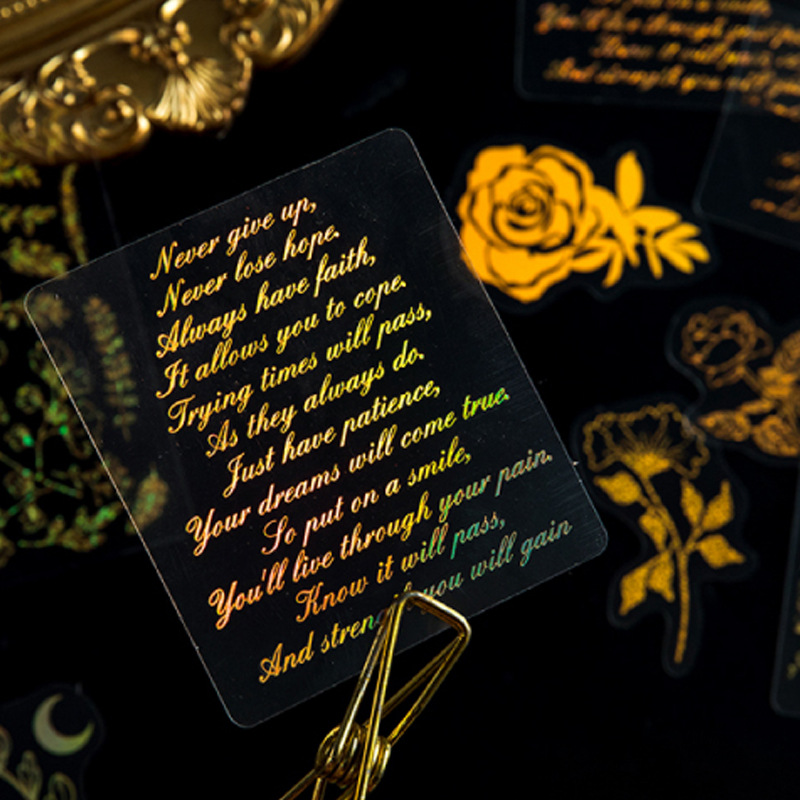 Never give up,
Never lose hope.
Always have faith,
It allows you to cope.
Trying times will pass,
As they always do.
Just have patience,
Your dreams will come true.
So put on a smile,
You'll live through your pain.
Know it will pass,
And strength you will gain
You'll live through your
Know it will pass,
And strength you will